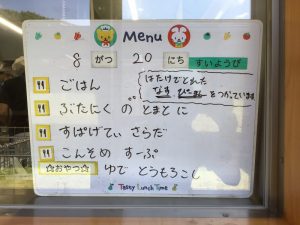 Menu
8 がつ 20 にち すいようび
はたけでとれた
なす ぴーまん をつかっています
ごはん
ぶたにく の とまと に
すぱげてぃ さらだ
こんそめ すーぷ
☆おやつ☆ ゆで とうもろこし
Tasty Lunch Time